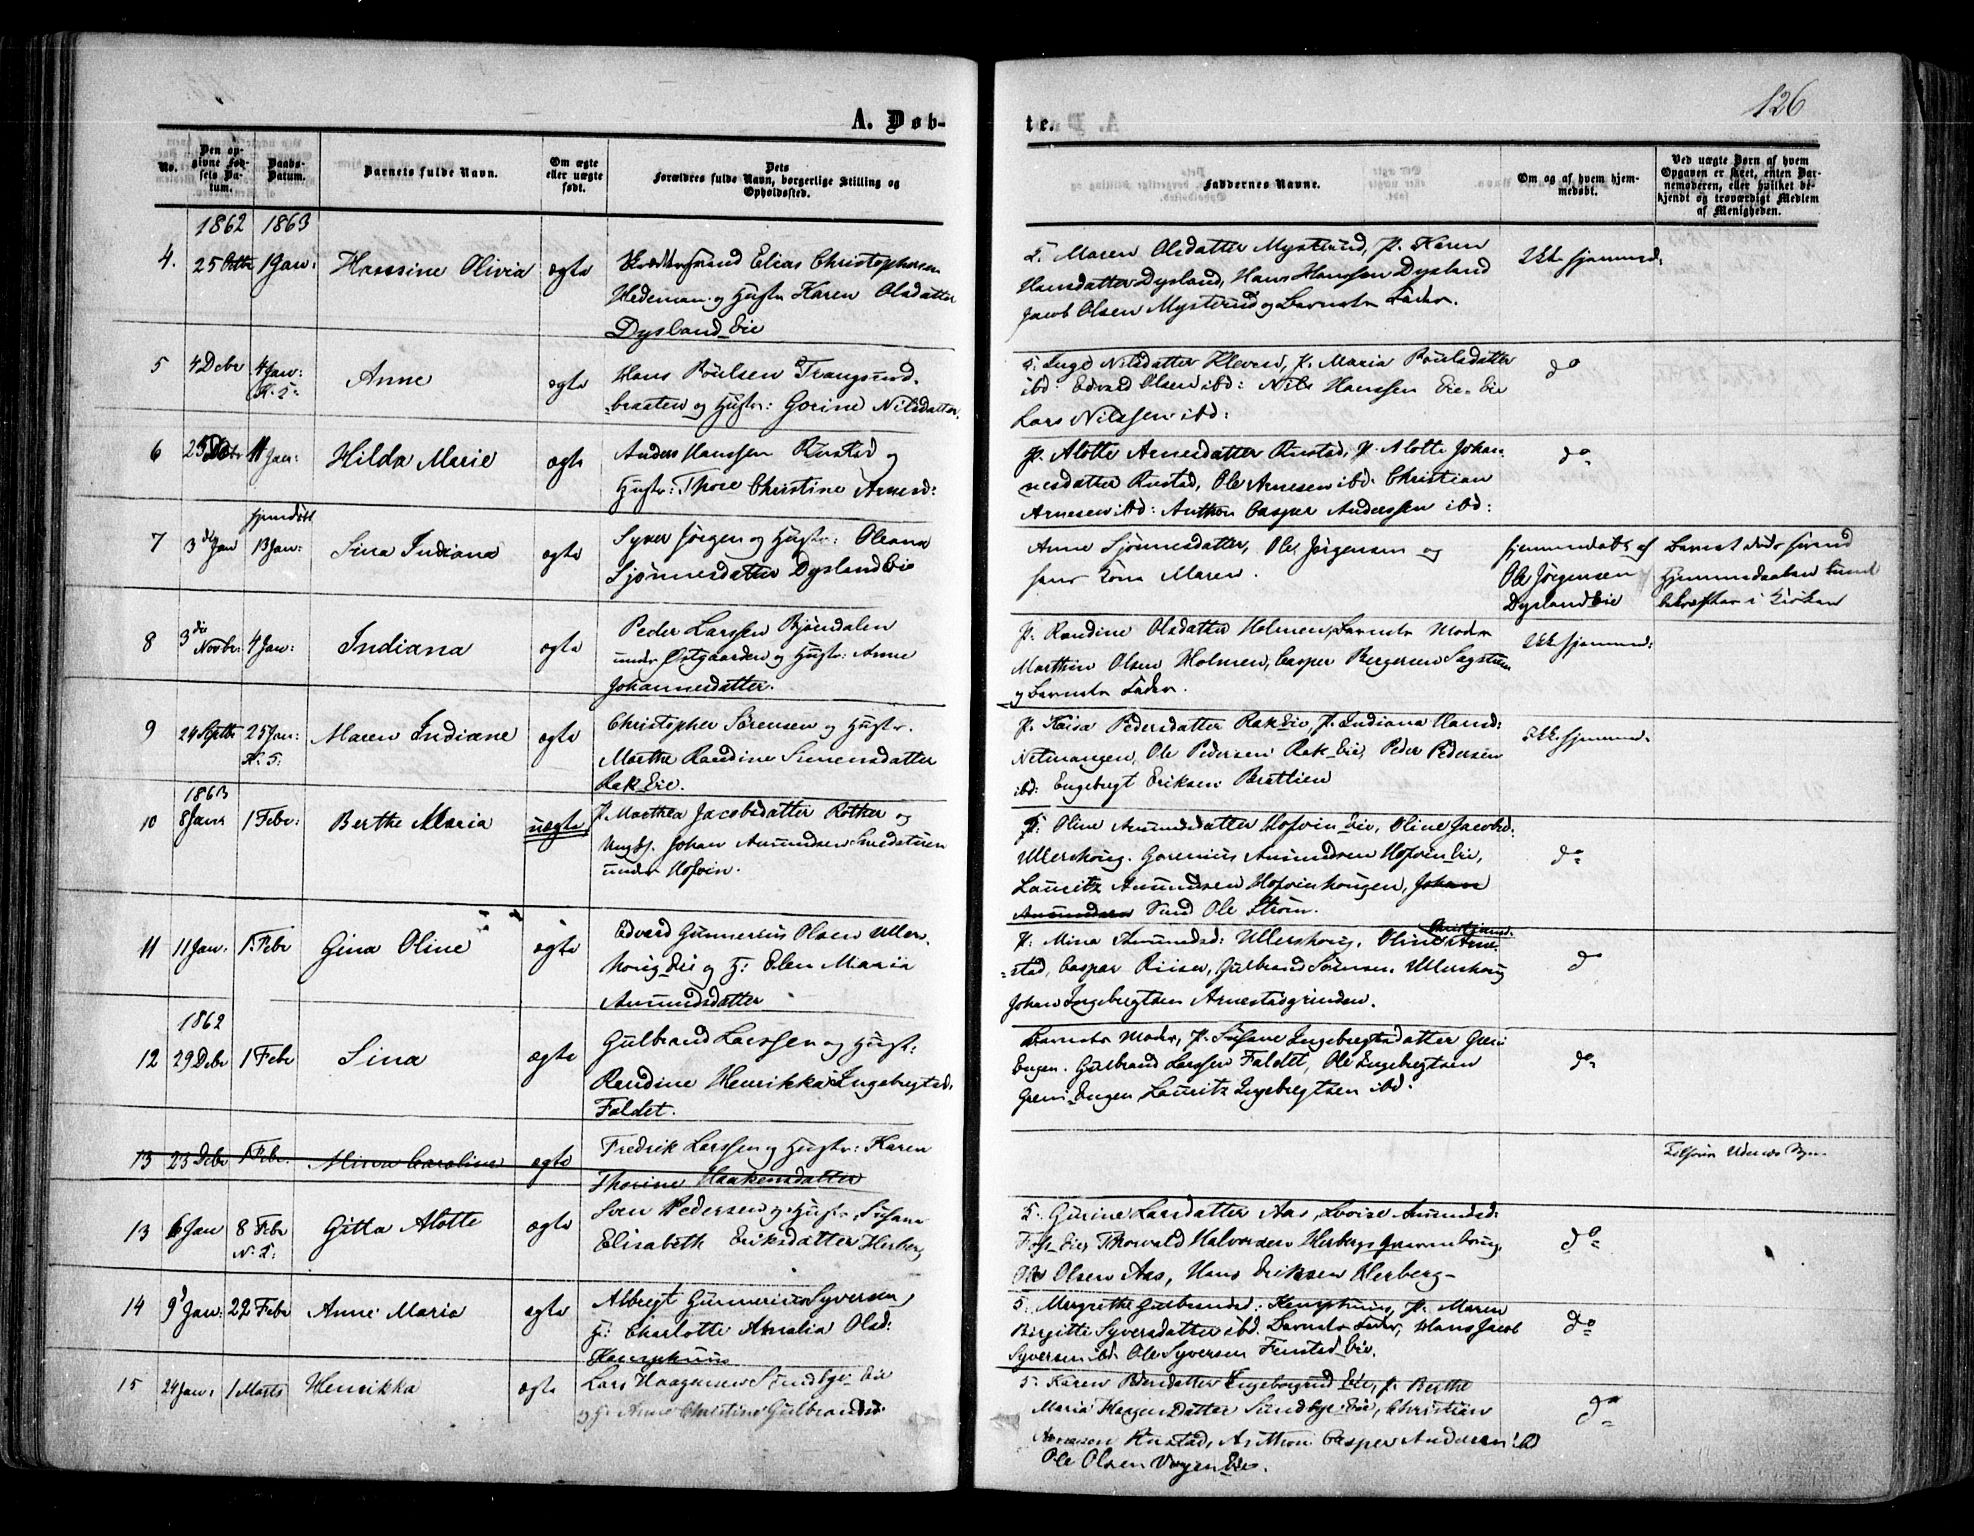 126
A. Døb-
te.
No.
Den op-
givne Fød-
sels Da-
tum.
Daabs-
Datum.
Barnets fulde Navn.
Om ægte
eller uægte
født.
Dets
Forældres fulde Navn, borgerlige Stilling og
Opholdssted.
Faddernes Navne.
Om og af hvem hjem-
medøbt.
Ved uægte Børn af hvem
Opgaven er skeet, enten Bar-
nemoderen, eller hvilket be-
kjendt og troværdigt Medlem
af Menigheden.
1862 1863
4. 25 Octbr 1 Jan: Hansine Olivia ægte
Elias Christophersen
Hedeman og Hustr Karen Olsdatter
Dysland Eie
Maren Olsdatter Mysterud, P. Karen
Hansdatter Dysland, Hans Hanssen Dysland
Jacob Olsen Mysterud og Barnets Fader.
Ikke hjemmed:
5 4 Debr 4 Jan: Anne ægte
K. 5:
Hans Poulsen Trangsrud-
braaten og Hustr: Gorine Nilsdatter
Inge Nilsdatter Kleven, P. Maria Poulsdatter
ibd Edvard Olsen ibd: Nils Hanssen Eie
Lars Nilssen ibd:
do
6 25 Debr 11 Jan: Hilda Marie ægte
Anders Hanssen Rustad og
Hustr: Thore Christine Arnesd:
P. Alotte Arnesdatter Rustad, P. Alotte Johan-
nesdatter Rustad, Ole Arnesen ibd. Christian
Arnesen ibd: Anthon Casper Anderssen ibd:
do
7 3 Jan hjemdøbt 13 Jan: Sina Indiana ægte
Syver Jørgen og Hustr: Oleana
Sjønnesdatter Dysland Eie
Anne Sjønnesdatter, Ole Jørgensen og
hans Kone Maren.
hjemmedøbt af
Ole Jørgensen
Dysland Eie
Barnet døde førend
Hjemmedaaben kunde
bekræftes i Kirken
8 3die Novbr: 4 Jan: Indiana ægte
Peder Larssen Bjøndalen
under Østgaarden og Hustr: Anne
Johannesdatter.
P. Randine Olsdatter Holmen, Barnets Moder
Marthin Olsen Holmen, Casper Bergersen Sagstuen
og Barnets Fader.
Ikke hjemmed:
9 24 Septbr 25 Jan: Maren Indiane ægte
K. 5:
Christopher Sørensen og Hustr.
Marthe Randine Simensdatter
Rak Eie.
P. Kaisa Pedersdatter Rak Eie, P. Indiana Hansd:
Netmangen, Ole Pedersen Rak Eie, Peder Pedersen
ibd: Engebregt Eriksen Brattlien
Ikke hjemmed:
1863
10 8 Janr 1 Febr: Berthe Maria uægte
P. Marthea Jacobsdatter Rother og
Ungk. Johan Amundsen Smedstuen
under Hofvin.
P: Oline Amundsdatter Hofvin Eie, Oline Jacobsd:
Ullershoug. Gorenius Amundsen Hofvin Eie,
Lauritz Amundsen Hofvinhougen, Johan
Amundsen Sund Ole Strøm.
do
11 11 Jan. 1 Febr Gina Oline ægte
Edvard Gunnerius Olsen Ullers-
houg Eie og H: Elen Maria
Amundsdatter
P: Mina Amundsd: Ullershoug, Oline Christiansd: Arne-
stad, Caspar Riiser, Gulbrand Sørensen Ullershoug
Johan Ingebregtsen Arnestadgrinden.
do
1862
12 29 Debr 1 Febr Sina ægte
Gulbrand Larssen og Hustr:
Randine Henrikka Ingebregtsd:
Faldet.
Barnets Moder, P. Susane Ingebregtsdatter Greni
Engen. Gulbrand Larssen Faldet, Ole Engebregtsen
Greni Engen Lauritz Ingebregtsen ibd.
do
13 23 Debr 1 Febr. Mina Caroline ægte
Fredrik Larssen og Hustr: Karen
Thorine Haakensdatter
13 6 Jan 8 Febr Gitta Alotte ægte
Sven Pedersen og Hustr. Susane
Elisabeth Eriksdatter Herberg
Gurine Larsdatter Aas, Lovise Amundsd:
Foss Eie, Thorvald Halvorsen Herbergs
Ole Olsen Aas, Hans Eriksen Herberg
do
14 9 Jan: 22 Febr Anne Maria ægte
Albregt Gunnerius Syversen,
H: Charlotte Amalia Olsd:
Kamphuus
Margrethe Gulbrandsd: Kamphuus, P. Maren
Birgitte Syversdatter ibd. Barnets Fader, Hans Jacob
Syversen ibd. Ole Syversen Fenstad Eie.
do
15 24 Jan: 1 Marts Henrikka ægte
Lars Haagensen Sundbye Eie
og H. Anne Christine Gulbrandsd:
Karen Pedersdatter Engebogrud Eie, P. Berthe
Maria Haagensdatter Sundbye Eie, Christian
Arnesen Rustad, Anthon Casper Andersen ibd
Ole Olsen Vogen Eie.
do